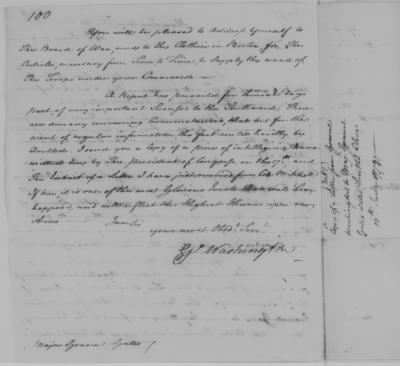 100
You will be pleased to Address yourself to
The Board of War, and to the Clothier in Boston for The
Articles, necessary from Time to Time, to supply the wants of
The Troops under your Command —
A Report has prevailed for some days
past of very important Success to the Southward; There
are so many concurring Circumstances, that but for the
want of regular information The fact can hardly be
doubted. I send you a Copy of a piece of intelligence
mitted me by The president of Congress on the 17th and
The Extract of a Letter I have just received from Col. Mitchell
If true, it is one of the most Glorious Events that could have
happened, and will reflect the Highest Honor upon our
Arms.
I am Sir
Your most Obed. Serv.
Go. Washington
Major General Gates
Copy of a Letter from General
Washington to Major General
Gates